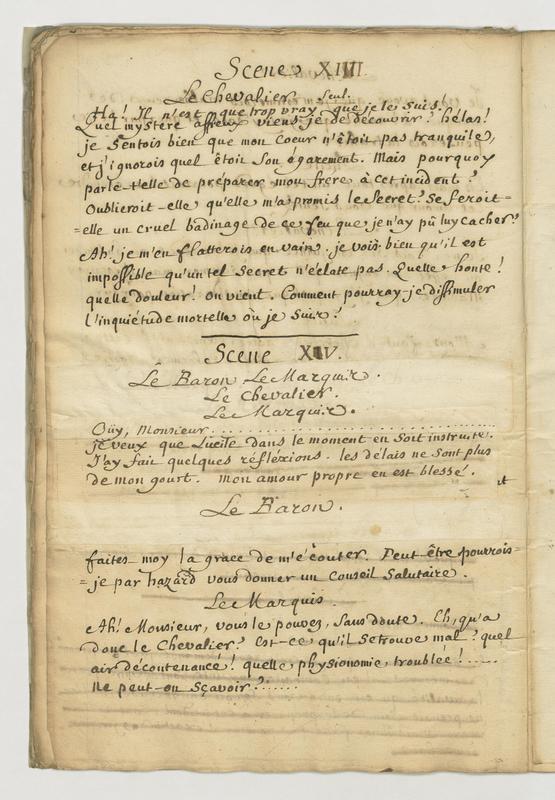 Scene XIIII.
Le Chevalier seul.
Ha! Il n'est que trop vray que je le suis!
Quel mystére affreux viens je de découvrir? hélas!
je sentois bien que mon coeur n'êtoit pas tranquile,
et j'ignorois quel êtoit son égarement. Mais pourquoy
parle t'elle de préparer mon frere à cet incident?
Oublieroit-elle qu'elle m'a promis le secret? Se feroit-
=elle un cruel badinage de ce feu que je n'ay pû luy cacher?
Ah! je m'en flatterois en vain. je vois bien qu'il est
impossible qu'un tel secret n'éclate pas. Quelle honte!
quelle douleur! on vient. Comment pourray-je dissimuler
l'inquiétude mortelle où je suis!
Scene XV.
Le Baron Le Marquis.
Le Chevalier.
Le Marquis.
Oüy, Monsieur ........................................
je veux que Lucile dans le moment en soit instruite.
J'ay fait quelques réfléxions. les délais ne sont plus
de mon goust. mon amour propre en est blessé.
Le Baron.
faites moy la grace de m'écouter. Peut-être pourrois-
=je par hazard vous donner un Conseil Salutaire.
Le Marquis
Ah! Monsieur, vous le pouvez, sans doute. Eh, qu'a
donc le Chevalier? est-ce qu'il se trouve mal? quel
air décontenancé! quelle physionomie troublée!......
ne peut-on sçavoir?......